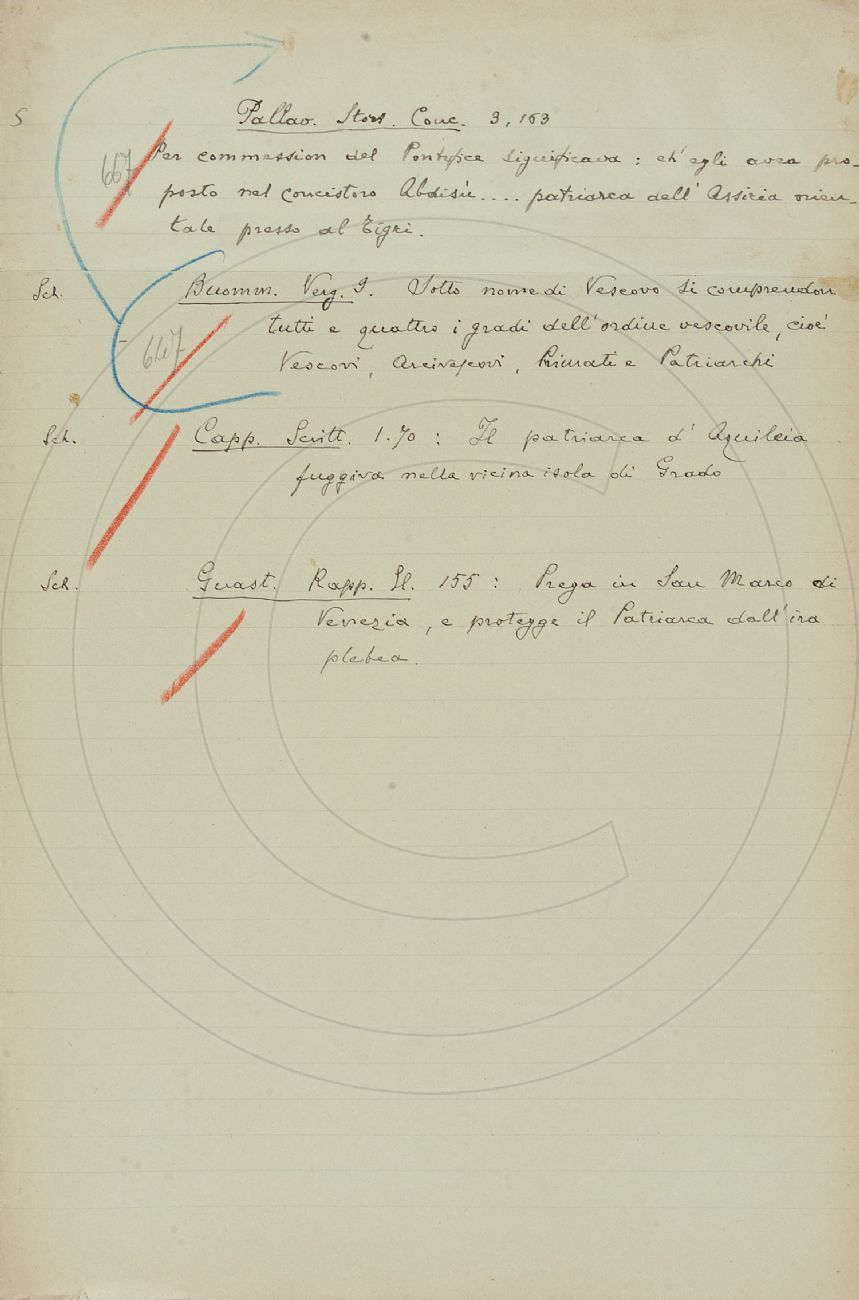 5
Pallav. Stor. Conc. 3, 163
667 Per commession del Pontefice significava: ch'egli avea pro-
posto nel concistoro Abdisù.... patriarca dell'Assiria orien-
tale presso al Tigri.
Sch. Buomm. Verg. I. Sotto nome di Vescovo si comprendon
tutti e quattro i gradi dell'ordine vescovile, cioè
667 Vescovi, Arcivescovi, Primati e Patriarchi
Sch. Capp. Scritt. 1.70: Il patriarca d'Aquileia
fuggiva nella vicina isola di Grado
Sch. Guast. Rapp. It. 155: Prega in San Marco di
Venezia, e protegge il Patriarca dall'ira
plebea.